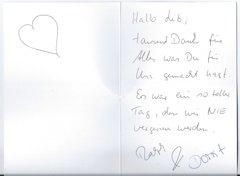 Hallo Lub,
tausend Dank für
Alles was Du für
Uns gemacht hast.
Es war ein so toller
Tag, den wir NIE
vergessen werden.
Ralph & Dorit